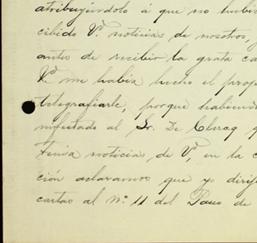 atribuyéndolo á que no hubie
cibido V. noticias de nosotros,
antes de recibir la grata ca
V. me había hecho el prop
telegrafiarle, porque habiendo
nifestado al Sr. De Clerq q
tenia noticias de V, en la c
ción aclaramos que yo dirij
cartas al nº 11 del Paseo de